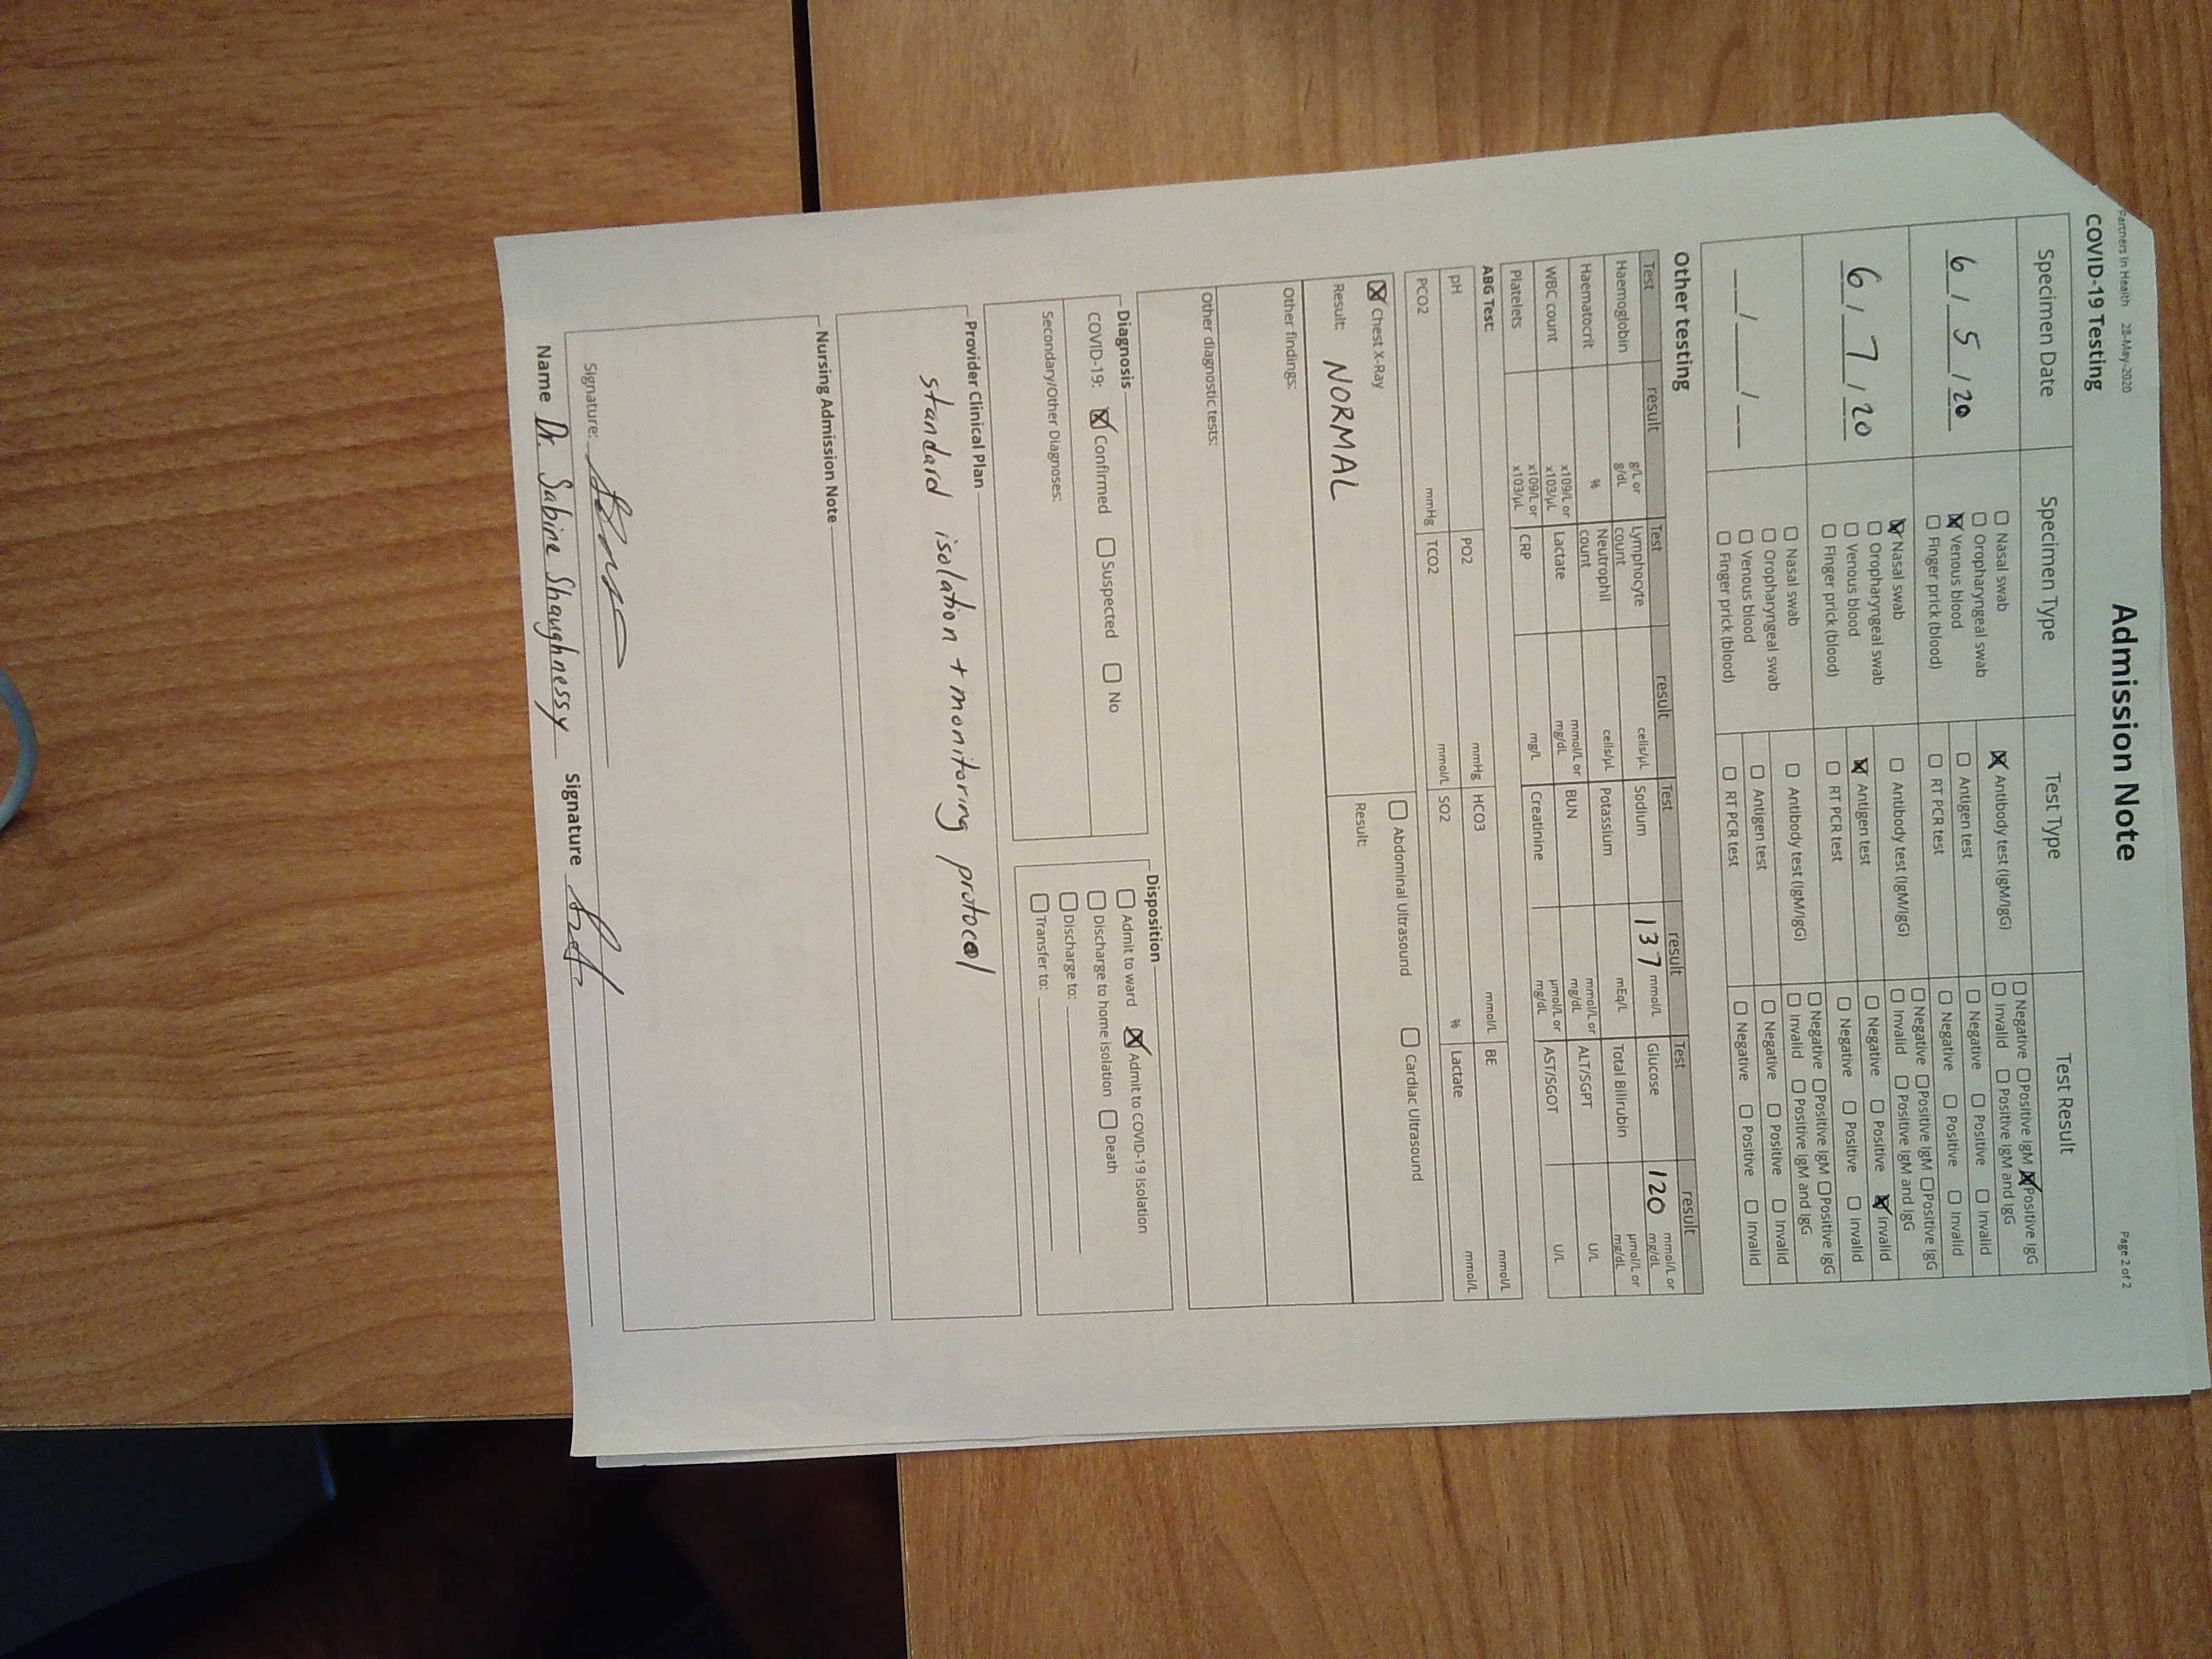 Partners in Health 28-May-2020
Admission Note
Page 2 of 2
COVID-19 Testing
Specimen Date Specimen Type Test Type Test Result
6 / 5 / 20
☐ Nasal swab
☐ Oropharyngeal swab
☒ Venous blood
☐ Finger prick (blood)
☒ Antibody test (IgM/IgG)
☐ Negative ☐ Positive IgM ☒ Positive IgG
☐ Invalid ☐ Positive IgM and IgG
☐ Antigen test
☐ Negative ☐ Positive ☐ Invalid
☐ RT PCR test
☐ Negative ☐ Positive ☐ Invalid
6 / 7 / 20
☒ Nasal swab
☐ Oropharyngeal swab
☐ Venous blood
☐ Finger prick (blood)
☐ Antibody test (IgM/IgG)
☐ Negative ☐ Positive IgM ☐ Positive IgG
☐ Invalid ☐ Positive IgM and IgG
☒ Antigen test
☐ Negative ☐ Positive ☒ Invalid
☐ RT PCR test
☐ Negative ☐ Positive ☐ Invalid
__/__/__
☐ Nasal swab
☐ Oropharyngeal swab
☐ Venous blood
☐ Finger prick (blood)
☐ Antibody test (IgM/IgG)
☐ Negative ☐ Positive IgM ☐ Positive IgG
☐ Invalid ☐ Positive IgM and IgG
☐ Antigen test
☐ Negative ☐ Positive ☐ Invalid
☐ RT PCR test
☐ Negative ☐ Positive ☐ Invalid
Other testing
Test result Test result Test result Test result
Haemoglobin g/L or g/dL Lymphocyte count cells/µL Sodium 137 mmol/L Glucose 120 mmol/L or mg/dL
Haematocrit % Neutrophil count cells/µL Potassium mEq/L Total Bilirubin µmol/L or mg/dL
WBC count x109/L or x103/µL Lactate mmol/L or mg/dL BUN mmol/L or mg/dL ALT/SGPT U/L
Platelets x109/L or x103/µL CRP mg/L Creatinine µmol/L or mg/dL AST/SGOT U/L
ABG Test:
pH PO2 mmHg HCO3 mmol/L BE mmol/L
PCO2 mmHg TCO2 mmol/L SO2 % Lactate mmol/L
☒ Chest X-Ray ☐ Abdominal Ultrasound ☐ Cardiac Ultrasound
Result: NORMAL Result:
Other findings:
Other diagnostic tests:
Diagnosis
COVID-19: ☒ Confirmed ☐ Suspected ☐ No
Secondary/Other Diagnoses:
Disposition
☐ Admit to ward ☒ Admit to COVID-19 Isolation
☐ Discharge to home isolation ☐ Death
☐ Discharge to:
☐ Transfer to:
Provider Clinical Plan
standard isolation + monitoring protocol
Nursing Admission Note
Signature:
Name Dr. Sabine Shaughnessy Signature